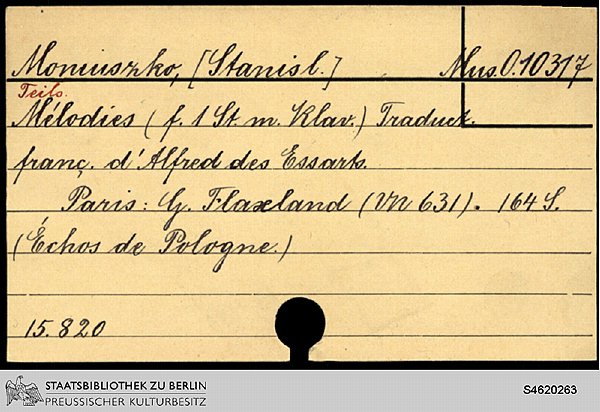 Moniuszko, [Stanisl.] Mus. O. 10317
Teils.
Mélodies (f. 1 St. m. Klav.) Traduct.
franç. d'Alfred des Essarts.
Paris: G. Flaxland (VN 631). 164 S.
(Échos de Pologne.)
15.820
STAATSBIBLIOTHEK ZU BERLIN
PREUSSISCHER KULTURBESITZ
S4620263